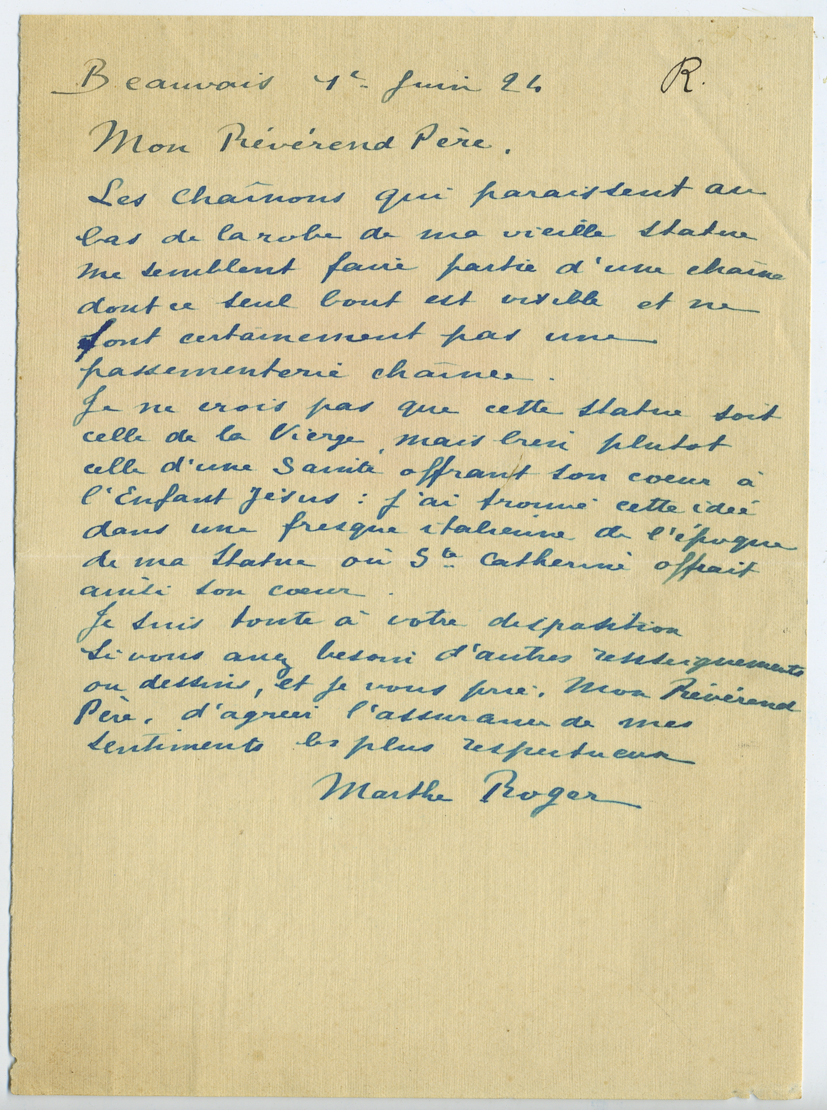 Beauvais 1er Juin 24 R.
Mon Révérend Père.
Les chaînons qui paraissent au
bas de la robe de ma vieille statue
me semblent faire partie d'une chaîne
dont ce seul bout est visible et ne
sont certainement pas une
passementerie chaînée.
Je ne crois pas que cette statue soit
celle de la Vierge, mais bien plutot
celle d'une Sainte offrant son coeur à
l'Enfant Jésus : j'ai trouvé cette idée
dans une fresque italienne de l'époque
de ma statue où Ste Catherine offrait
ainsi son coeur.
Je suis toute à votre disposition
si vous avez besoin d'autres renseignements
ou dessins, et je vous prie, Mon Révérend
Père, d'agréer l'assurance de mes
sentiments les plus respectueux
Marthe Roger